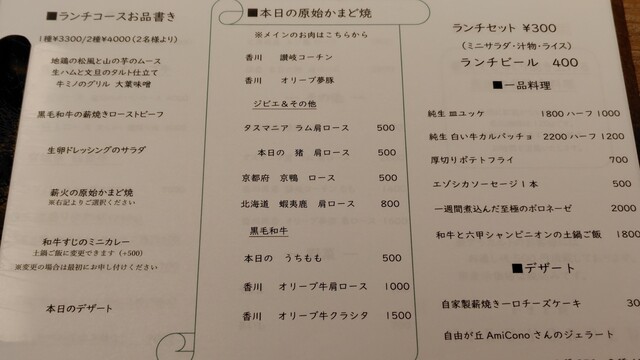 ■ランチコースお品書き
1種¥3300/2種¥4000(2名様より)
地鶏の松風と山の芋のムース
生ハムと文旦のタルト仕立て
牛ミノのグリル 大葉味噌
黒毛和牛の薪焼きローストビーフ
生卵ドレッシングのサラダ
薪火の原始かまど焼
※右記よりご選択ください
和牛すじのミニカレー
土鍋ご飯に変更できます (+500)
※変更の場合は最初にお申し付けください
本日のデザート
■本日の原始かまど焼
※メインのお肉はこちらから
香川 讃岐コーチン
香川 オリーブ夢豚
ジビエ&その他
タスマニア ラム肩ロース 500
本日の 猪 肩ロース 500
京都府 京鴨 ロース 500
北海道 蝦夷鹿 肩ロース 800
黒毛和牛
本日の うちもも 500
香川 オリーブ牛肩ロース 1000
香川 オリーブ牛クラシタ 1500
ランチセット ¥300
(ミニサラダ・汁物・ライス)
ランチビール 400
■一品料理
純生 皿ユッケ 1800 ハーフ 1000
純生 白い牛カルパッチョ 2200 ハーフ 1200
厚切りポテトフライ 700
エゾシカソーセージ1本 500
一週間煮込んだ至極のボロネーゼ 2000
和牛と六甲シャンピニオンの土鍋ご飯 1800
■デザート
自家製薪焼き一口チーズケーキ 30
自由が丘 AmiCono さんのジェラート